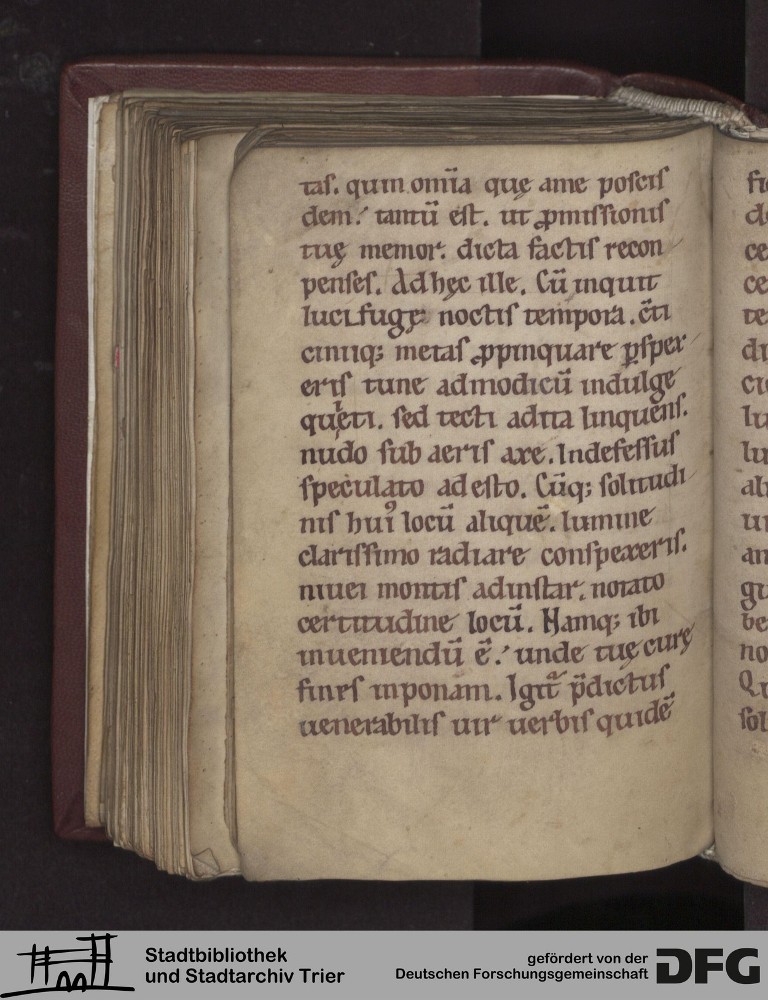 tas. quin om̄ia quę ame poscis
dem.' tantū est. ut ꝓmissionis
tuę memor. dicta factis recon
penses. Ad hęc ille. Cū inquit
lucifugę noctis tempora. c̄ti
ciniiqꝫ metas ꝓpinquare ꝑspex
eris tunc admodicū indulge
quięti. sed tecti adita linquens.
nudo sub aeris axe. Indefessus
speculato adesto. Cūqꝫ solitudi
nis hui᾽ locū aliquē. lumine
clarissimo radiare conspexeris.
niuei montis adinstar. notato
certitudine locū. Namqꝫ ibi
inueniendū ē.' unde tuę curę
finis inponam. Igit᷑ p̄dictus
uenerabilis uir uerbis quidē
fi
de
ce
ce
te
di
ci
lu
lu
al
ui
an
gu
be
no
Qu
sol
Stadtbibliothek
und Stadtarchiv Trier
gefördert von der
Deutschen Forschungsgemeinschaft
DFG